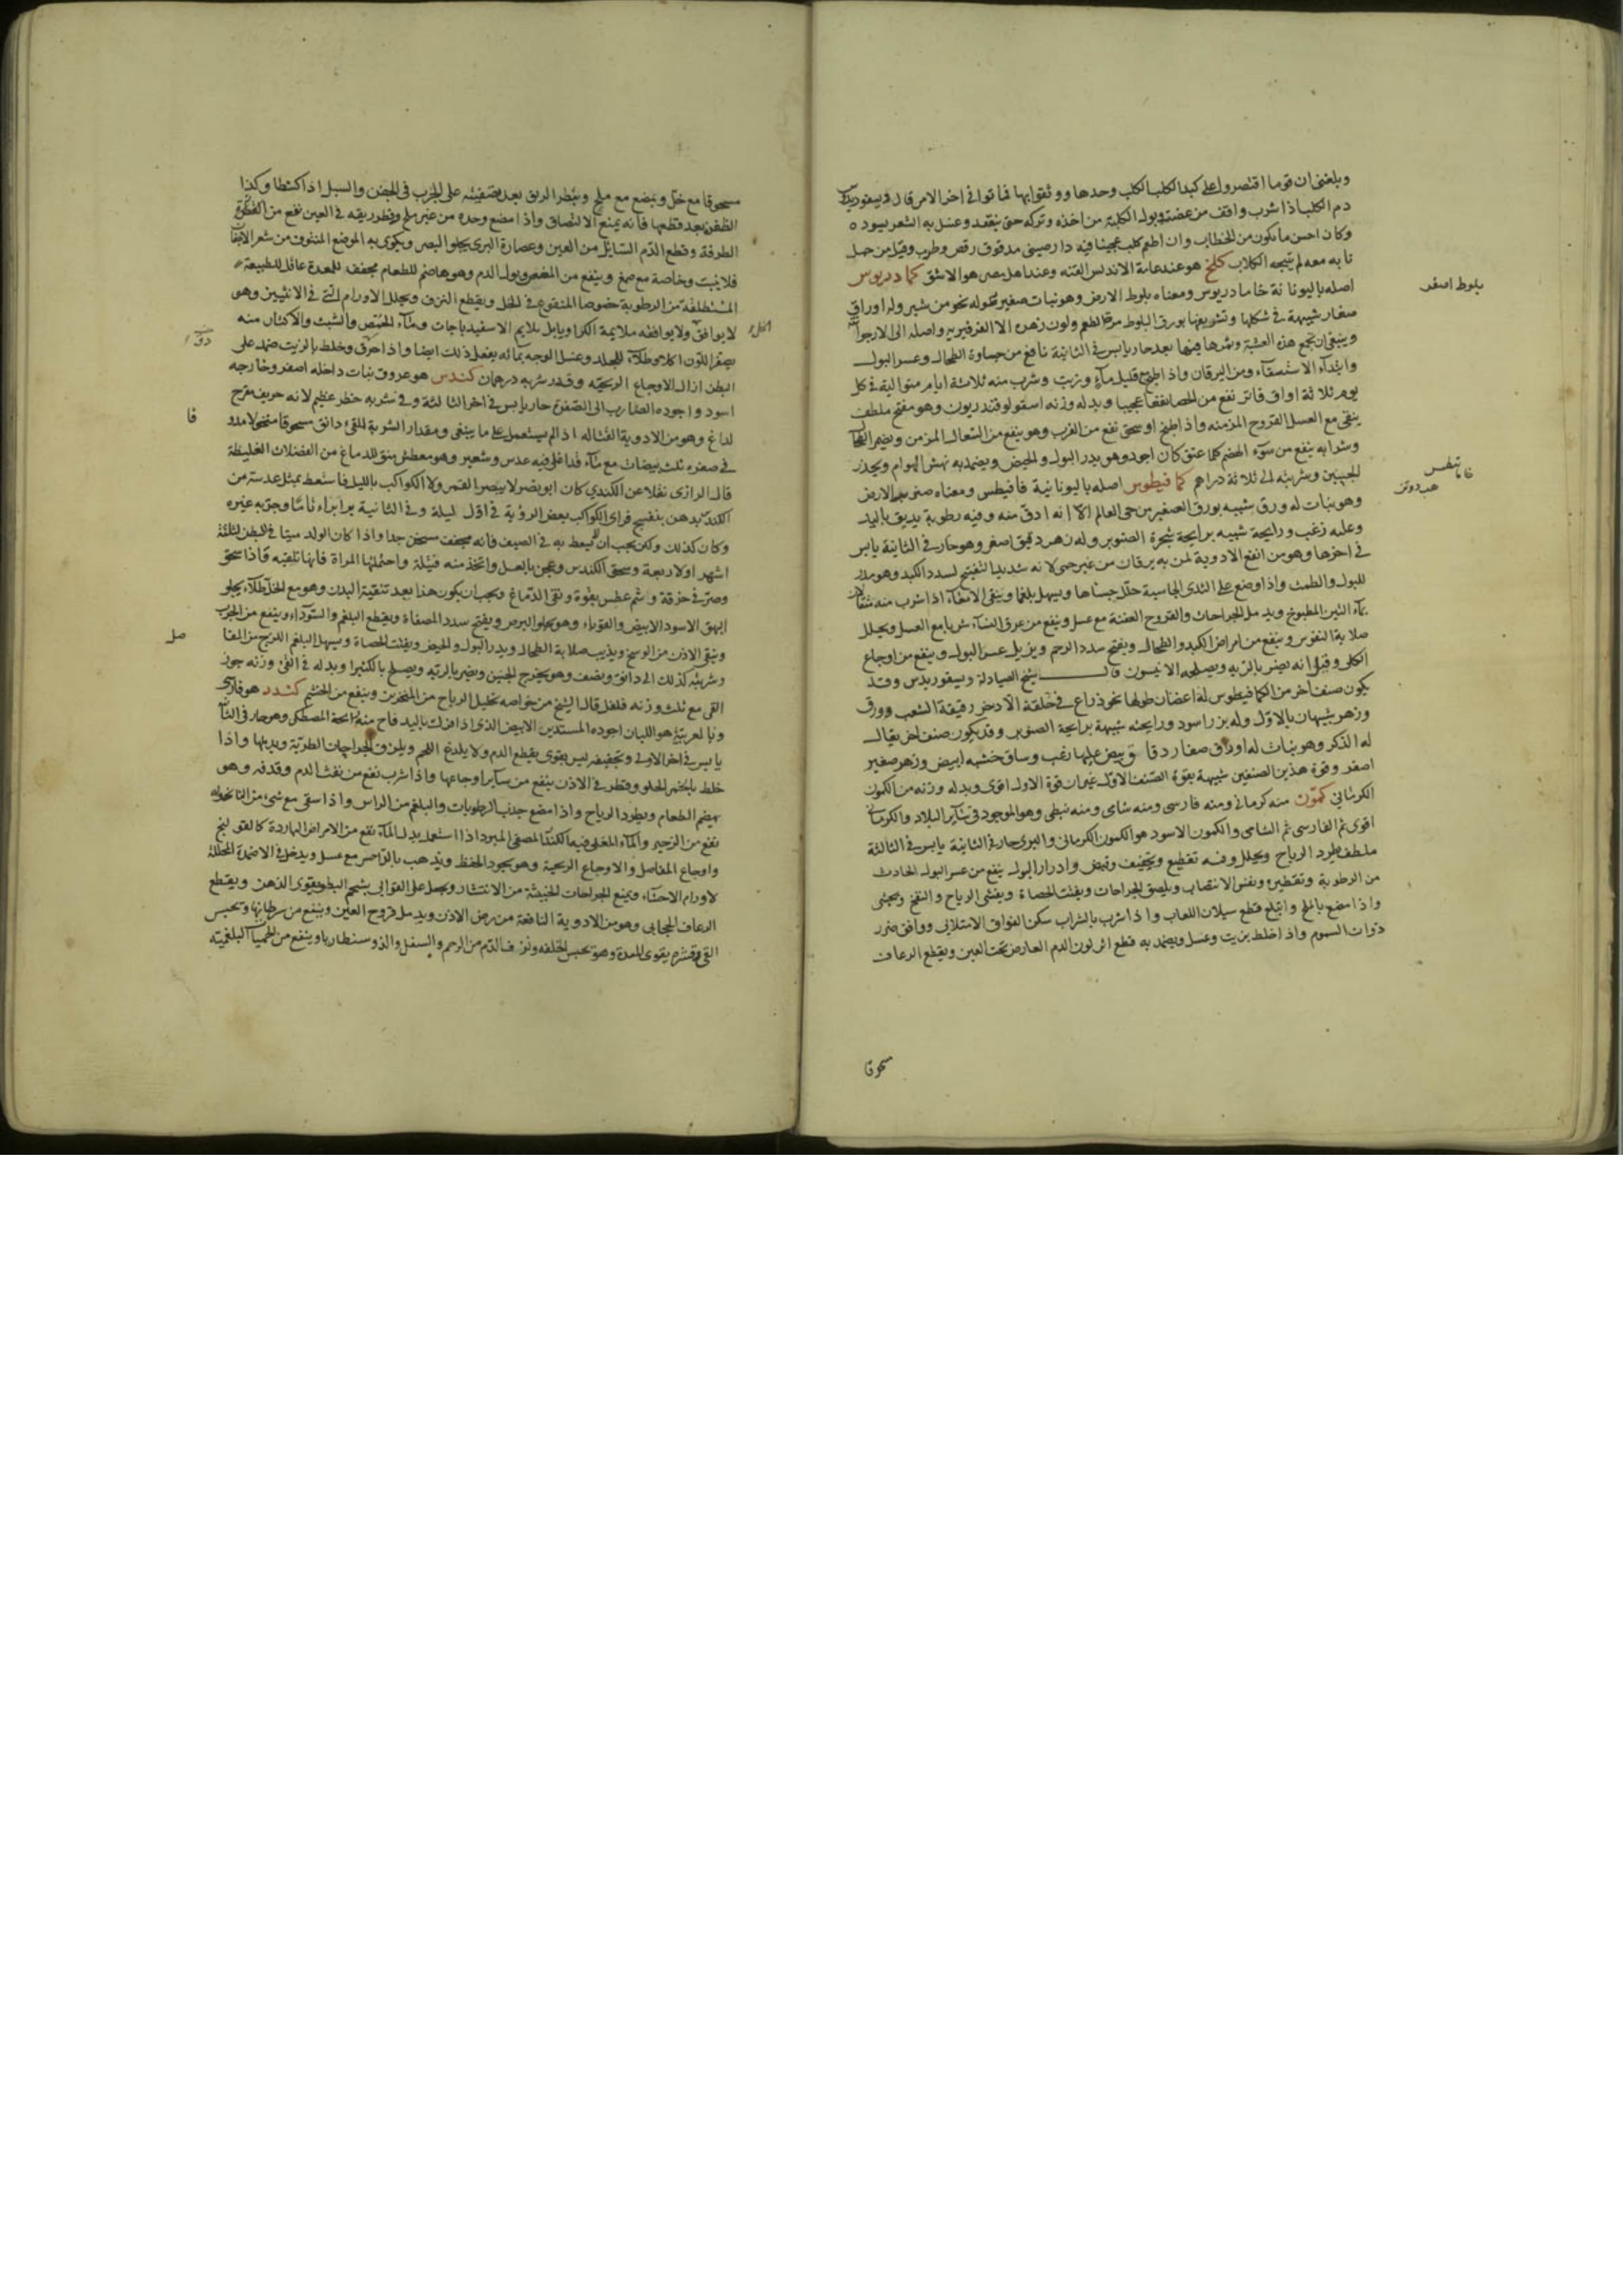 وبلغني ان قوما اقتصروا على كبد الكلب الكلب وحدها ووثقوا بها فماتوا في اخر الامر قال ديسقوريدس
دم الكلب اذا شرب وافق من عضته وبول الكلبة من اخذه وتركه حتى ينعقد وغسل به الشعر يسوده
وكان احسن ما يكون من الخطاب وان اطعم كلب عجينا فيه دارصيني مدقوق رقص وطرب وقيل من حمل
نابه معه لم ينبحه الكلاب كلخ هو عند عامة الاندلس القنه وعند اهل مصر هو الاشق كما دريوس
اصله باليونانية خامادريوس ومعناه بلوط الارض وهو نبات صغير طوله نحو من شبر وله اوراق
صغار شبيهة في شكلها وتشريفها بورق البلوط مر الطعم ولون زهره الا الفرفيرية واصله الى الارجوا
وينبغي ان تجمع هذه العشبة وثمرها فيها بعد حار يابس في الثانية نافع من جساوة الطحال وعسر البول
وابتداء الاستسقاء ومن اليرقان واذا طبخ مع قليل ماء وزيت وشرب منه ثلاثة ايام متوالية في كل
يوم ثلاثة اواق فاتر نفع من الحصا نفعا عجيبا وبدله وزنه اسقولوقندريون وهو مفتح ملطف
ينقى مع العسل القروح المزمنه واذا طبخ او سحق نفع من الغرب وهو ينفع من السعال المزمن ويضمر الطحا
وشرابه ينفع من سوء الهضم كلما عتق كان اجود وهو يدر البول والحيض ويضمد به نهش الهوام ويحدر
الجنين وشربته الى ثلاثة دراهم كما فيطوس اصله باليونانية خامافيطس ومعناه صنوبر الارض
وهو نبات له ورق شبيه بورق الصغير من حى العالم الا انه ادق منه وفيه رطوبة يدبق باليد
وعليه زغب ورايحة شبيه برايحة شجرة الصنوبر وله زهر دقيق اصفر وهو حار في الثانية يابس
في اخرها وهو من انفع الادوية لمن به يرقان من غير حمى لانه شديد التفتيح لسدد الكبد وهو مدر
للبول والطمث واذا وضع على الثدى الجاسية حلل جساها ويسهل بلغما وينقى الامعاء اذا شرب منه مثقالان
بماء التين المطبوخ ويدمل الجراحات والقروح العفنة مع عسل وينفع من عرق النساء شربا مع العسل ويحلل
صلابة النقرس وينفع من امراض الكبد والطحال ويفتح سدد الرحم ويزيل عسر البول وينفع من اوجاع
الكلى وقيل انه يضر بالريه ويصلحه الانيسون قال شيخ الصيادلة ديسقوريدس وقد
يكون صنف اخر من الكمافيطوس له اغصان طولها نحو ذراع في خلقة الاذخر رقيقة الشعب وورق
وزهر شبيهان بالاول وله بزر اسود ورايحته شبيهة برايحة الصنوبر وقد يكون صنف اخر يقال
له الذكر وهو نبات له اوراق صغار دقاق بيض عليها زغب وساق خشنه ابيض وزهر صغير
اصفر وقوة هذين الصنفين شبيهة بقوة الصنف الاول غير ان قوة الاول اقوى وبدله وزنه من الكمون
الكرماني كمون منه كرماني ومنه فارسى ومنه شامى ومنه نبطى وهو الموجود في ساير البلاد والكرماني
اقوى ثم الفارسى ثم الشامى والكمون الاسود هو الكمون الكرمانى والبرى حار في الثانية يابس في الثالثة
ملطف يطرد الرياح ويحلل وفيه تقطيع وتجفيف وقبض وادرار البول ينفع من عسر البول الحادث
من الرطوبة وتقطيره ونفس الانتصاب ويلصق الجراحات ويفتت الحصاة ويفشى الرياح والنفخ ويجشى
واذا مضغ بالملح وابتلع قطع سيلان اللعاب واذا شرب بالشراب سكن الفواق الامتلائى ووافق ضرر
ذوات السموم واذا خلط بزيت وعسل ويضمد به قطع اثر لون الدم العارض تحت العين ويقطع الرعاف
سحوقا
بلوط اصغر
مسحوقا مع خل ويمضغ مع ملح ويقطر الريق بعد تصفيته على الجرب في الجفن والسبل اذا كشطا وكذا
الظفرة بعد قطعها فانه يمنع الالتصاق واذا مضغ وحده من غير ملح وقطر ريقه في العين نفع من القطرة
الطرفة وقطع الدم السايل من العين وعصارة البرى يجلو البصر ويكوى به الموضع المنتوف من شعر الاجفا
فلا ينبت وخاصة مع صمغ وينفع من المغص وبول الدم وهو هاضم للطعام مجفف للمعدة عاقل للطبيعة
المستطلقة من الرطوبة خصوصا المنقوع في الخل ويقطع النزف ويحلل الاورام التي في الانثيين وهو
لا يوافق ولا يوافقه ملايمة الكرا ويا بل يلايم الاسفيد باجات وماء الحمص والشبث والاكثار منه
يصفر اللون اكلا وطلاء للجلد وغسل الوجه بمائه يفعل ذلك ايضا واذا حرق وخلط بالزيت ضمد على
البطن ازال الاوجاع الريحيه وقدر شربه درهمان كندس هو عروق نبات داخله اصفر وخارجه
اسود واجوده الضارب الى الصفرة حار يابس في اخر الثالثة وفي شربه خطر عظيم لانه حريف مقرح
لداغ وهو من الادوية القتاله اذا لم يستعمل على ما ينبغي ومقدار الشربة للقئ دانق مسحوقا منخولا مدو
في صفره ثلث بيضات مع ماء قد اغلى فيه عدس وشعير وهو معطش منق للدماغ من الفضلات الغليظة
قال الرازى نقلا عن الكندي كان ابو نصر لا يبصر القمر ولا الكواكب بالليل فاستعط بمثل عدسة من
الكندس بدهن بنفسج فراى الكواكب بعض الرؤية في اول ليلة وفي الثانية برا براءا تاما وجربه غيره
وكان كذلك ولكن يجب ان يسعط به في الصيف فانه مجفف مسخن جدا واذا كان الولد ميتا في البطن لثلثة
اشهر او لاربعة وسحق الكندس وعجن بالعسل واتخذ منه فتيلة واحتملتها المراة فانها تلقيه واذا سحق
وصر في خرقة واشم عطس بقوة ونقى الدماغ ويجب ان يكون هذا بعد تنقية البدن وهو مع الخل طلاء يجلو
البهق الاسود الابيض والقوباء وهو يجلو البرص ويفتح سدد المصفاة ويقطع البلغم والسوداء وينفع من الجرب
وينقى الاذن من الوسخ ويذيب صلابة الطحال ويدر البول والحيض ويفتت الحصاة ويسهل البلغم اللزج من المفا
صل
وشربته كذلك الى دانق ونصف وهو يخرج الجنين ويضر بالريه ويصلح بالكثيرا وبدله في القئ وزنه جوز
القى مع ثلث وزنه فلفل قال الشيخ من خواصه تحليل الرياح من المنخرين وينفع من الخشم كندر هو فارسى
وبالعربية هو اللبان اجوده المستدير الابيض الذى اذا فرك باليد فاح منه رايحة المصطكى وهو حار في الثا
يابس في اخر الاولى وتجفيفه ليس بقوى يقطع الدم ولا يلدغ اللحم ويلزق الجراحات الطرية ويدملها واذا
خلط بالخمر الحلو وقطر في الاذن ينفع من ساير اوجاعها واذا شرب نفع من نفث الدم وقذفه وهو
يهضم الطعام ويطرد الرياح واذا مضغ جذب الرطوبات والبلغم من الراس واذا سقى مع شئ من النانخواه
نفع من الزحير والماء المغلى فيه الكندر المصفى المبرد اذا استعمل بدل الماء نفع من الامراض الباردة كالقولنج
واوجاع المفاصل والاوجاع الريحية وهو يجود الحفظ ويذهب بالداحس مع عسل ويدخل في الاضمدة المحللة
لاورام الاحشاء ويمنع الجراحات الخبيثة من الانتشار ويجعل على القوابي بشحم البط ويقوى الذهن ويقطع
الرعاف الحجابى وهو من الادوية النافعة من رض الاذن ويدمل قروح العين وينفع من سرطانها ويحبس
القى وقشره يقوى المعدة وهو يحبس الخلفه ونزف الدم من الرحم والسفل والذوسنطاريا وينفع من الحميات البلغمية